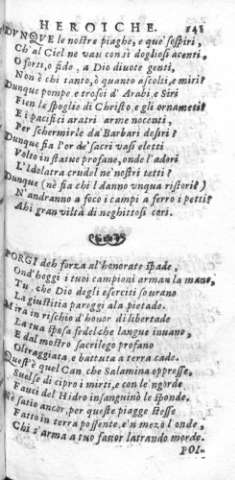 HEROICHE. 145
DVNQVE le nostre piaghe, e que' sospiri,
Ch'al Ciel ne van con sì dogliosi acenti,
O forti, o fide, a Dio divote genti,
Non è chi tanto, ò quanto ascolti, e miri?
Dunque pompe e trofei d'Arabi, e Siri
Fien le spoglie di Christo, e gli ornamenti?
E i pacifici aratri arme nocenti,
Per schermirle da' Barbari desiri?
Dunque fia l'or de' sacri vasi eletti
Volto in statue profane, onde l'adori
L'Idolatra crudel ne' nostri tetti?
Dunque (nè fia chi'l danno unqua ristori?)
N'andranno a foco i campi a ferro i petti?
Ahi gran viltà di neghittosi cori.
PORGI deh forza al'honorate spade,
Ond'hoggi i tuoi campioni arman la mano,
Tu che Dio degli eserciti sourano
La giustitia pareggi ala pietade.
Mira in rischio d'honor di libertade
La tua sposa fedel che langue inuano,
E dal mostro sacrilego profano
Oltraggiata, e battuta a terra cade.
Quest'è quel Can che Salamina oppresse,
Suelse di cipro i mirti, e con le 'ngorde
Fauci del Hidro insanguinò le sponde.
Nè satio ancor, per queste piagge stesse
Fatto in terra possente, e 'n mezo l'onde,
Chi s'arma a tuo fauor latrando morde.
POI-